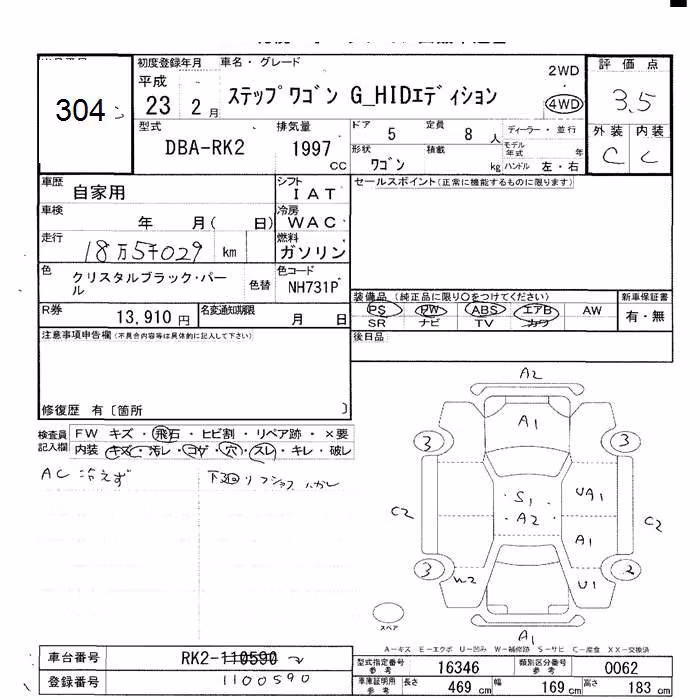 304
初度登録年月
平成
23 2 月
車名・グレード
ステップワゴン G_HIDエディション
2WD
4WD
評 価 点
3.5
外装 内装
C C
型式
DBA-RK2
排気量
1997
CC
ドア 5
定員 8 人
ディーラー・並行
形状 ワゴン
積載 kg
モデル年式 年
ハンドル 左・右
車歴
自家用
シフト
I A T
セールスポイント(正常に機能するものに限ります)
車検
年 月( 日)
冷房
W A C
走行
18万5千029 km
燃料
ガソリン
色
クリスタルブラック・パール
色替
色コード
NH731P
R券
13,910 円
名変通知期限
月 日
装備品 (純正品に限り○をつけてください)
PS PW ABS エアB AW
SR ナビ TV カワ
新車保証書
有・無
後日品
注意事項申告欄(不具合内容等は具体的に記入して下さい)
修復歴 有〔箇所 〕
検査員記入欄
FW キズ・飛石・ヒビ割・リペア跡・×要
内装 キズ・汚レ・コゲ・穴・スレ・キレ・破レ
AC 冷えず
A2
A1
3
3
S1
A2
UA1
C2
C2
A1
3
2
W2
U1
A1
スペア
A-キズ E-エクボ U-凹み W-補修跡 S-サビ C-腐食 XX-交換済
車台番号
RK2-110590
1100590
登録番号
型式指定番号
参考
16346
類別区分番号
参考
0062
車庫証明用
参考
長さ 469 cm
幅 169 cm
高さ 183 cm